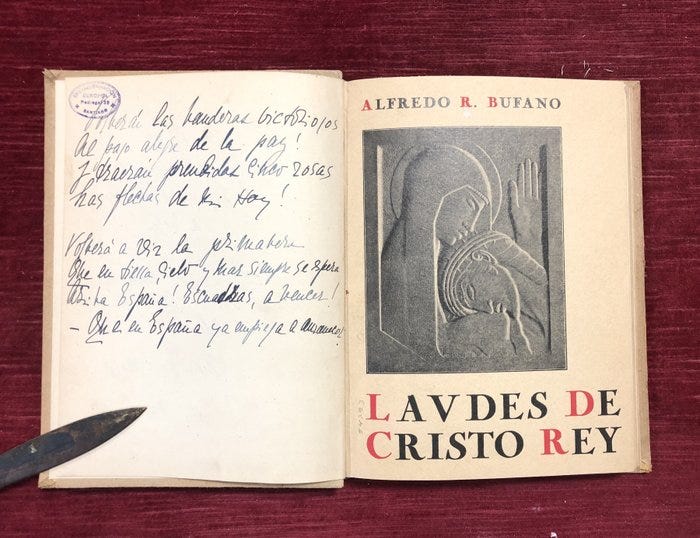 SANTIAGO
Volverán las banderas victoriosas
Al paso alegre de la paz!
Y traerán prendidas cinco rosas
Las flechas de mi Haz!
Volverá a reir la primavera
Que en tierra, cielo y mar siempre se espera
Arriba España! Escuadras, a vencer!
– Que en España ya empieza a amanecer!
ALFREDO R. BUFANO
LAVDES DE
CRISTO REY